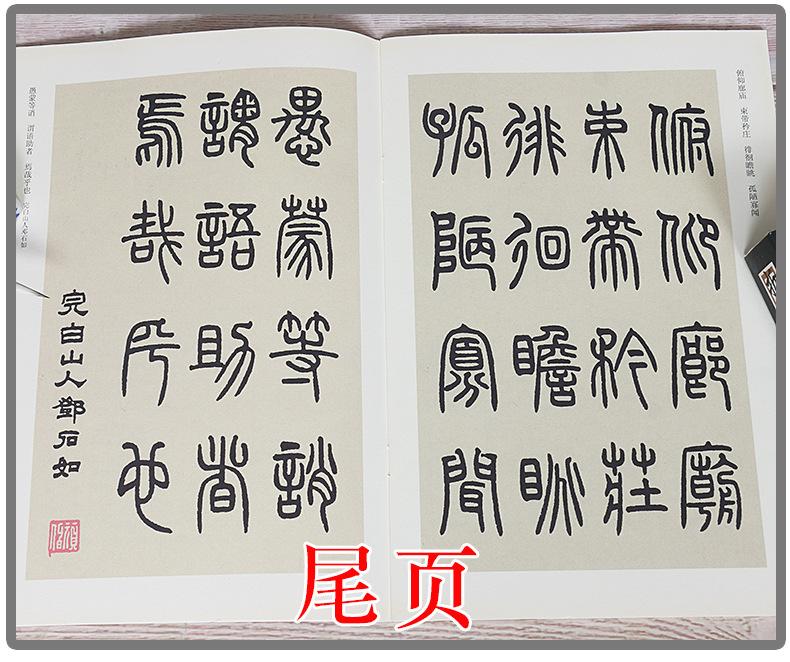 俯仰廊庙 束带矜庄 徘徊瞻眺 孤陋寡闻
俯仰廊廟
束帶矜莊
徘徊瞻眺
孤陋寡聞
愚蒙等誚
謂語助者
焉哉乎也
完白山人鄧石如
愚蒙等诮 谓语助者 焉哉乎也 完白山人邓石如
尾页